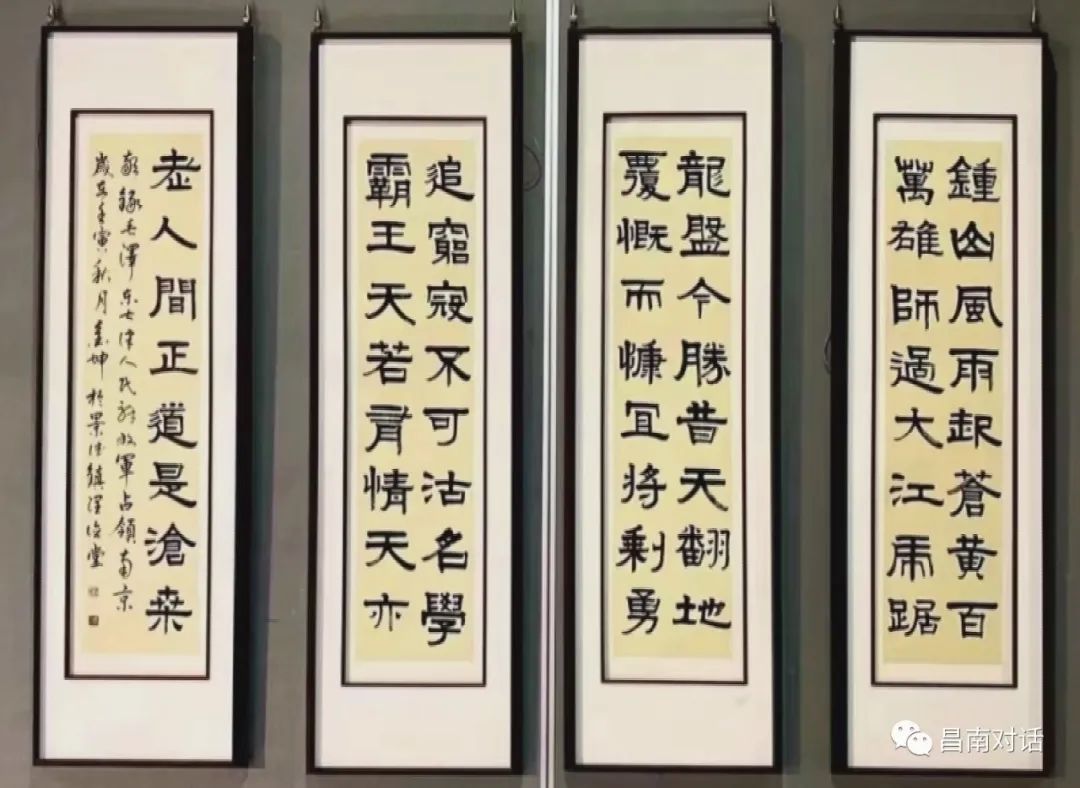 鍾山風雨起蒼黄百
萬雄師過大江虎踞
龍盤今勝昔天翻地
覆慨而慷宜將剩勇
追窮寇不可沽名學
霸王天若有情天亦
老人間正道是滄桑
敬錄毛澤东七律人民解放軍占領南京
歲在壬寅秋月 坤於景德鎮 堂
昌南对话